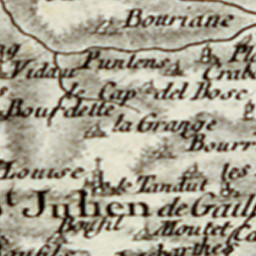 Bouriane
Puntens
Vidau
Crab
le Cap del Bosc
Bourdette
la Grange
Bourr
Louise
le Tandut
les
t Julien de Gail
Boufil
Moutet
barthe